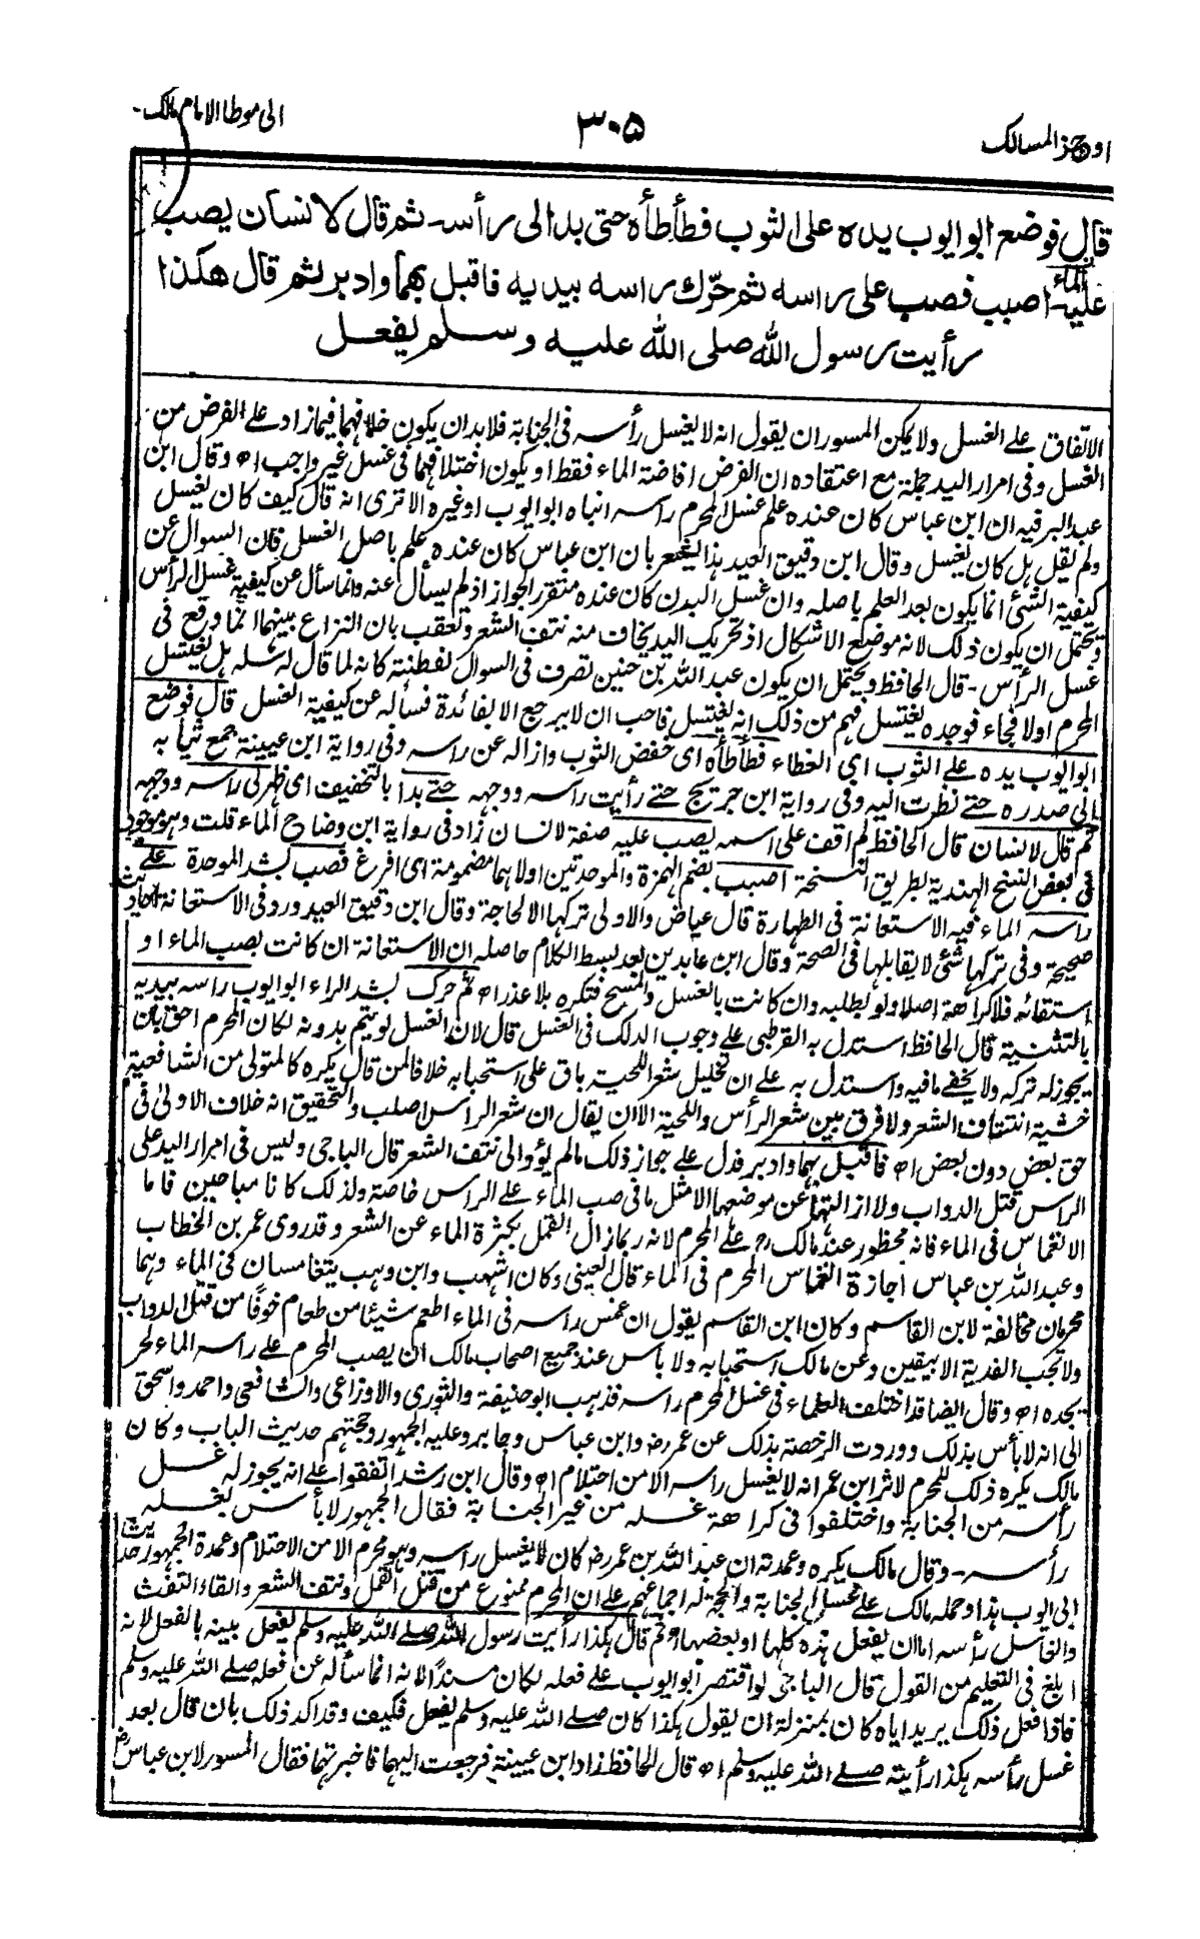 اوجز المسالك
٣٠۵
الى موطا الامام مالك-
قال فوضع ابو ايوب يده على الثوب فطأطأه حتى بدا لى رأسه ثم قال لانسان يصب
عليه الماء اصبب فصب على راسه ثم حرّك راسه بيديه فاقبل بهما وادبر ثم قال هكذا
رأيت رسول الله صلى الله عليه وسلم يفعل
الاتفاق على الغسل ولا يمكن المسور ان يقول انه لا يغسل رأسه فى الجنابة فلا بد ان يكون خلافهما فيما زاد على الفرض من
الغسل وفى امرار اليد جملة مع اعتقاده ان الفرض افاضة الماء فقط او يكون اختلافهما فى غسل غير واجب اه وقال ابن
عبد البر فيه ان ابن عباس كان عنده علم غسل المحرم راسه انباه ابو ايوب او غيره الا ترى انه قال كيف كان يغسل
ولم يقل هل كان يغسل وقال ابن دقيق العيد هذا يشعر بان ابن عباس كان عنده علم باصل الغسل فان السوال عن
كيفية الشئ انما يكون بعد العلم باصله وان غسل البدن كان عنده متقرر الجواز اذ لم يسأل عنه وانما سأل عن كيفية غسل الرأس
ويحتمل ان يكون ذلك لانه موضع الاشكال اذ تحريك اليد يخاف منه نتف الشعر وتعقب بان النزاع بينهما انما وقع فى
غسل الرأس- قال الحافظ ويحتمل ان يكون عبد الله بن حنين تصرف فى السوال لفطنته كانه لما قال له سله هل يغتسل
المحرم اولا فجاء فوجده يغتسل فهم من ذلك انه يغتسل فاحب ان لا يرجع الا بفائدة فسأله عن كيفية الغسل قال فوضع
ابو ايوب يده على الثوب اى الغطاء فطأطأه اى خفض الثوب وازاله عن راسه وفى رواية ابن عيينة جمع ثيابه
الى صدره حتے نظرت اليه وفى رواية ابن جريج حتے رأيت راسه ووجهه حتے بدا بالتخفيف اى ظهر لى راسه ووجهه
ثم قال لانسان قال الحافظ لم اقف على اسمه يصب عليه صفة لانسان زاد فى رواية ابن وضاح الماء قلت وهو موجود
فى بعض النسخ الهندية بطريق النسخة اصبب بضم الهمزة والموحدتين اولاهما مضمومة اى افرغ فصب بشد الموحدة علے
راسه الماء فيه الاستعانة فى الطهارة قال عياض والاولى تركها الا لحاجة وقال ابن دقيق العيد ورد فى الاستعانة احاديث
صحيحة وفى تركها شئ لا يقابلها فى الصحة وقال ابن عابدين بعد بسط الكلام حاصله ان الاستعانة ان كانت بصب الماء او
استقائه فلا كراهة اصلا ولو بطلبه وان كانت بالغسل والمسح فتكره بلا عذر اه ثم حرك بشد الراء ابو ايوب راسه بيديه
بالتثنية قال الحافظ استدل به القرطبى على وجوب الدلك فى الغسل قال لان الغسل لو يتم بدونه لكان المحرم احق بان
يجوز له تركه ولا يخفے ما فيه واستدل به على ان تخليل شعر اللحية باق على استحبابه خلافا لمن قال يكره كالمتولى من الشافعية
خشية انتتاف الشعر ولا فرق بين شعر الرأس واللحية الا ان يقال ان شعر الراس اصلب والتحقيق انه خلاف الاولىٰ فى
حق بعض دون بعض اه فاقبل بهما وادبر فدل على جواز ذلك ما لم يؤد الى نتف الشعر قال الباجى وليس فى امرار اليد على
الراس قتل الدواب ولا ازالتها عن موضعها الا مثل ما فى صب الماء على الراس خاصة ولذلك كانا مباحين فاما
الانغماس فى الماء فانه محظور عند مالك رح على المحرم لانه ربما زال القمل بكثرة الماء عن الشعر وقد روى عمر بن الخطاب
وعبد الله بن عباس اجازة انغماس المحرم فى الماء قال العينى وكان اشهب وابن وهب يتغامسان فى الماء وهما
محرمان مخالفة لابن القاسم وكان ابن القاسم يقول ان غمس راسه فى الماء اطعم شيئا من طعام خوفا من قتل الدواب
ولا تجب الفدية الا بيقين وعن مالك استحبابه ولا باس عند جميع اصحاب مالك ان يصب المحرم على راسه الماء لحر
يجده اه وقال ايضا قد اختلف العلماء فى غسل المحرم راسه فذهب ابو حنيفة والثورى والاوزاعى والشافعى واحمد واسحق
الى انه لا بأس بذلك ووردت الرخصة بذلك عن عمر رض وابن عباس وجابر وعليه الجمهور وحجتهم حديث الباب وكان
مالك يكره ذلك للمحرم لاثر ابن عمر انه لا يغسل راسه الا من احتلام اه وقال ابن رشد اتفقوا على انه يجوز له غسل
رأسه من الجنابة واختلفوا فى كراهة غسله من غير الجنابة فقال الجمهور لا بأس بغسله
رأسه- وقال مالك يكره وعمدته ان عبد الله بن عمر رض كان لا يغسل راسه وهو محرم الا من الاحتلام وعمدة الجمهور حديث
ابى ايوب هذا وحمله مالك على غسل الجنابة والحجة له اجماعهم على ان المحرم ممنوع من قتل القمل ونتف الشعر والقاء التفث
والغاسل رأسه اما ان يفعل هذه كلها او بعضها اه ثم قال هكذا رأيت رسول الله صلے الله عليه وسلم يفعل بينه بالفعل لانه
ابلغ فى التعليم من القول قال الباجى لو اقتصر ابو ايوب على فعله لكان مسندًا لانه انما سأله عن فعله صلے الله عليه وسلم
فاذا فعل ذلك يريد اياه كان بمنزلة ان يقول هكذا كان صلے الله عليه وسلم يفعل فكيف وقد اكد ذلك بان قال بعد
غسل رأسه هكذا رأيته صلے الله عليه وسلم اه قال الحافظ زاد ابن عيينة فرجعت اليهما فاخبرتهما فقال المسور لابن عباس رض